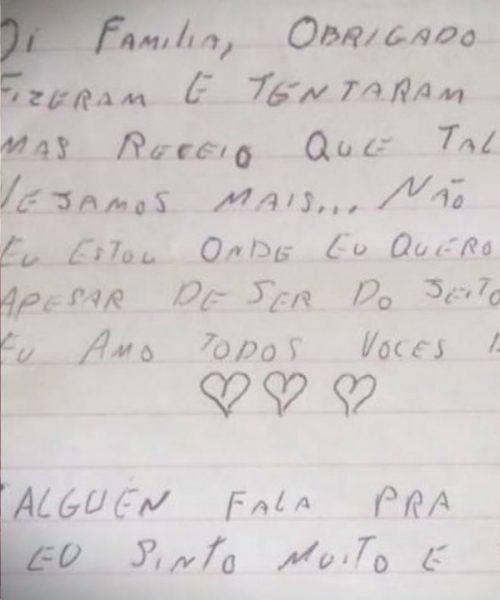 Oi Familia, OBRIGADO
FIZERAM E TENTARAM
MAS RECEIO QUE TAL
VEJAMOS MAIS... NÃO
EU ESTOU ONDE EU QUERO
APESAR DE SER DO JEITO
EU AMO TODOS VOCES
ALGUÉN FALA PRA
EU SINTO MUITO E